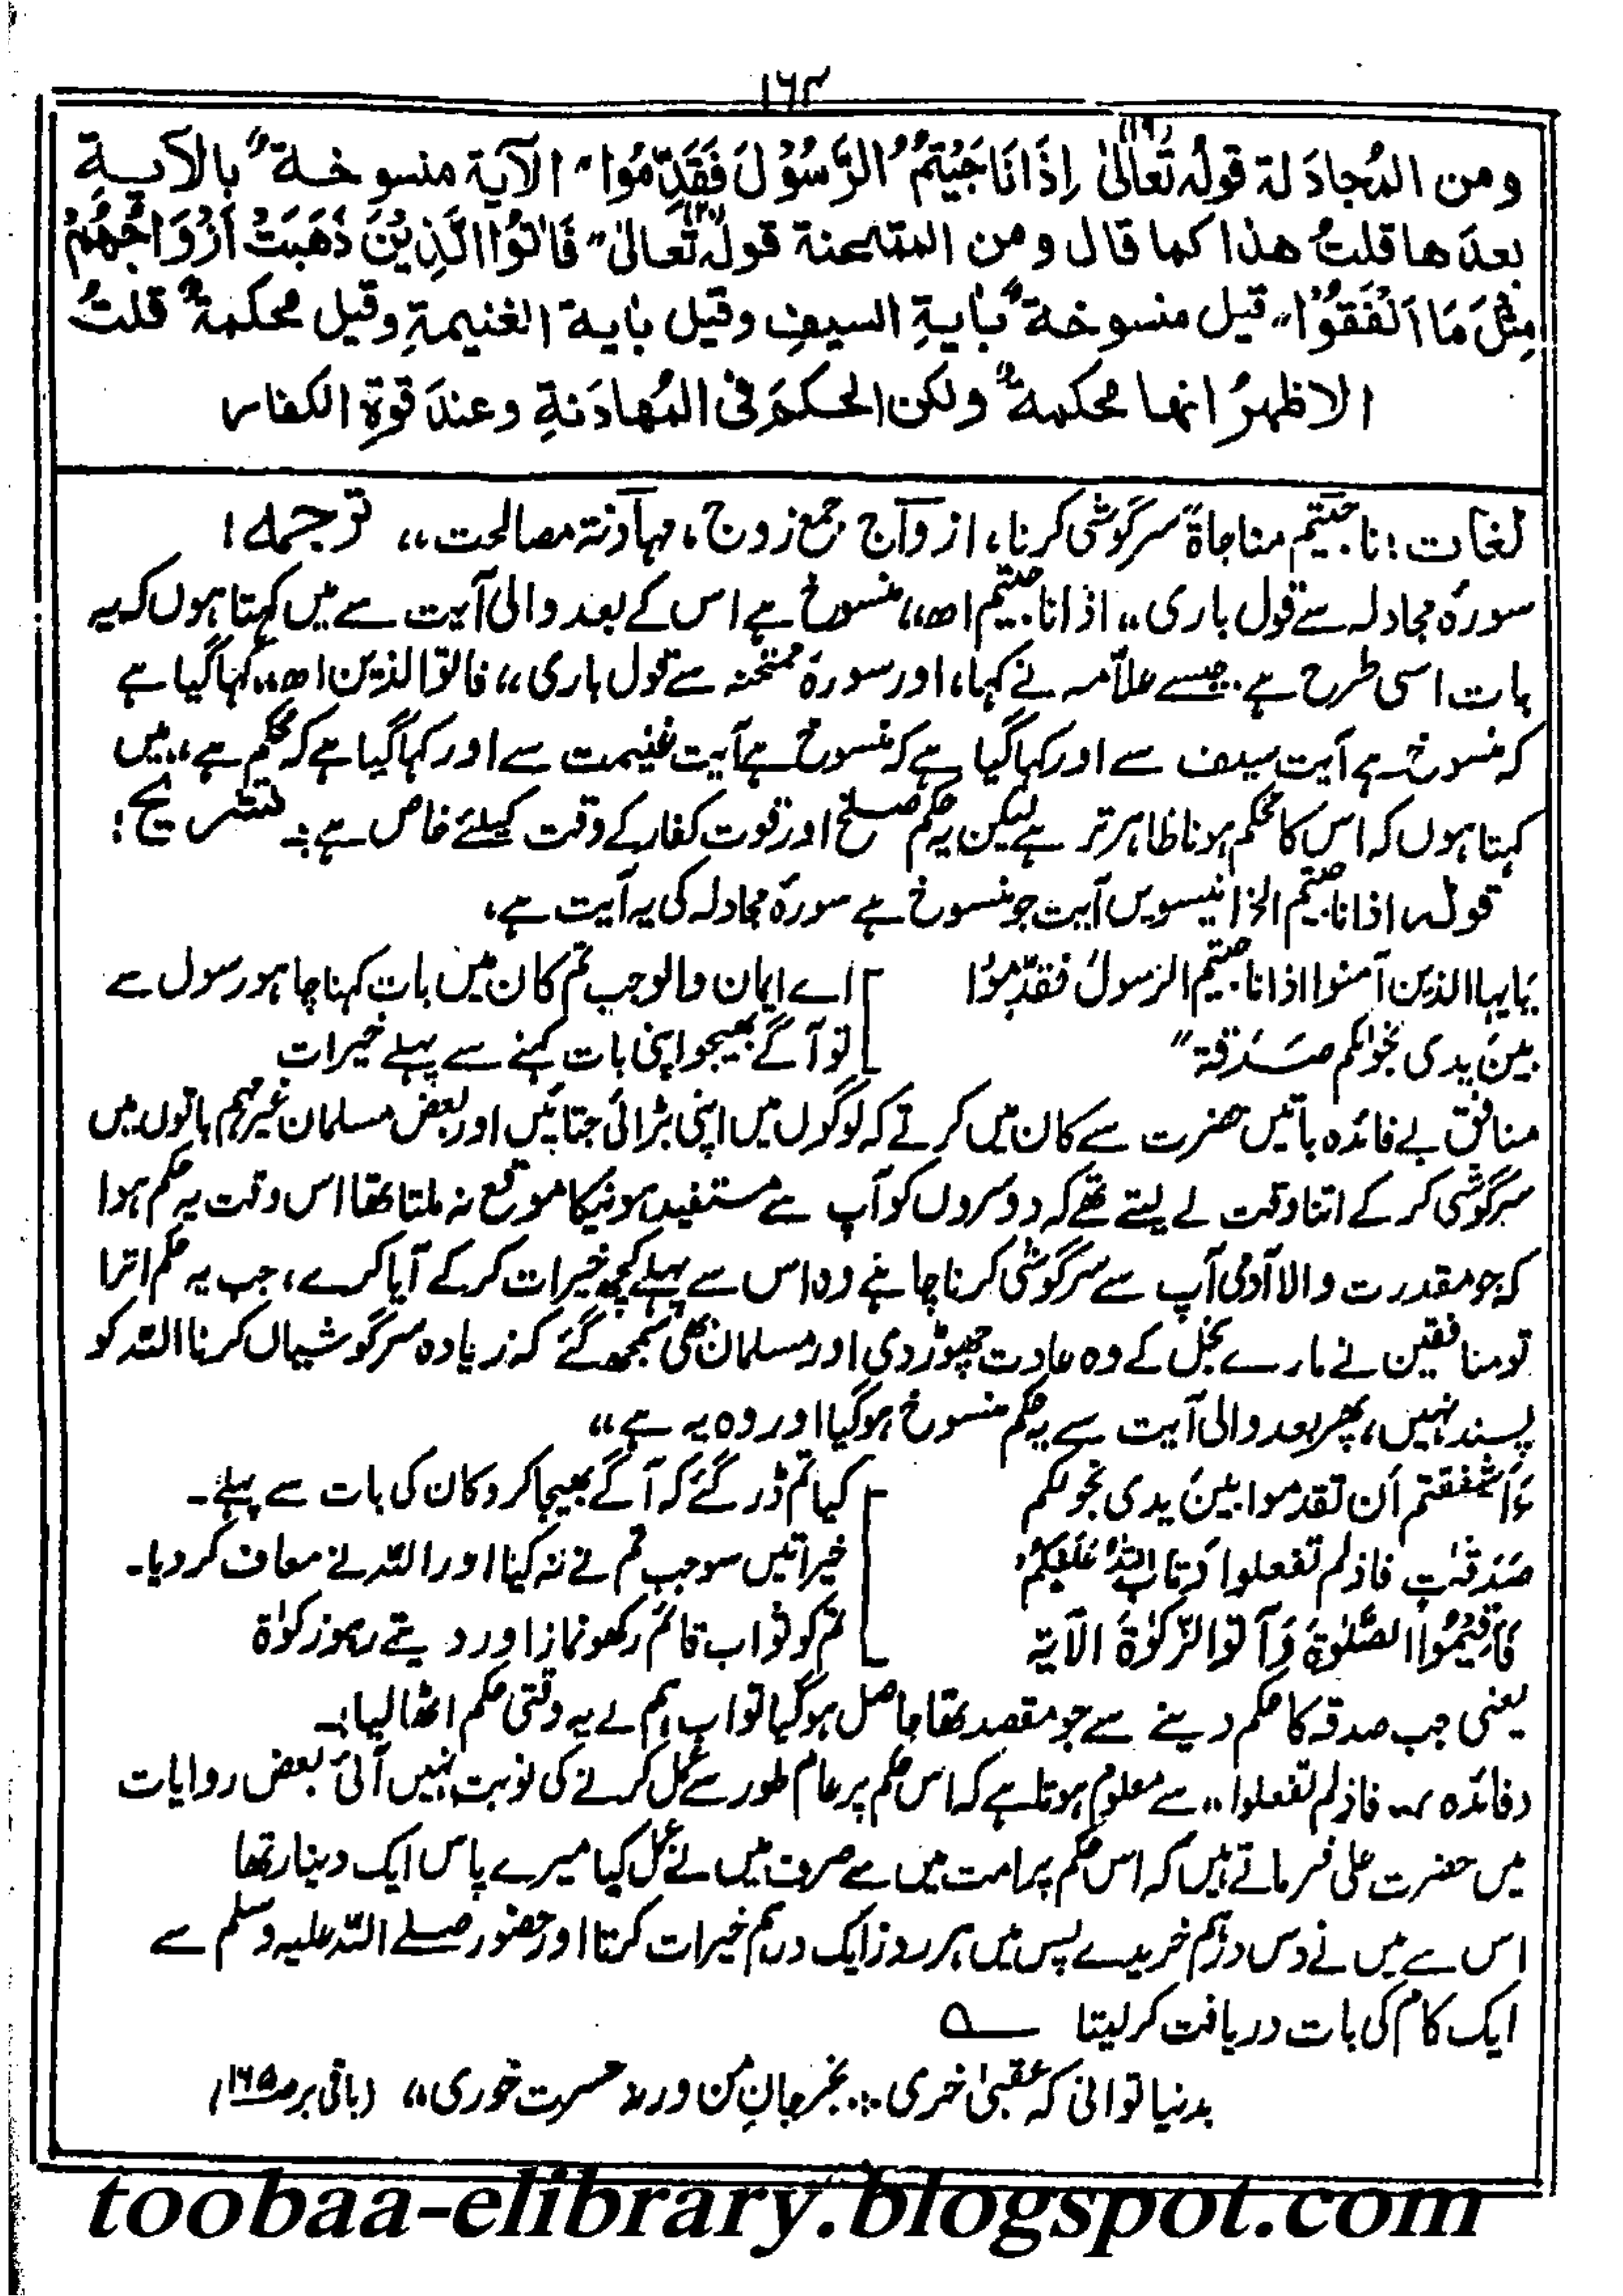 ۱۶۴
ومن المُجادَلة قولُه تَعَالیٰ (۱۹) اِذَا نَاجَيْتُمُ الرَّسُوْلَ فَقَدِّمُوْا" الآیة منسوخة" بالآیةِ
بعدَها قلتُ هذا کما قال ومن الممتحنة قولُه تَعالیٰ (۲۰)" فَاٰتُوا الَّذِيْنَ ذَهَبَتْ اَزْوَاجُهُمْ
مِثْلَ مَا اَنْفَقُوْا" قیل منسوخة" بٰایةِ السیفِ وقیل بٰایة الغنیمةِ وقیل محکمة" قلتُ
الاظهرُ انها محکمة" ولکن الحکمَ فی المُهادَنةِ وعندَ قوةِ الکفار
لغات: ناجیتم مناجاةً سرگوشی کرنا، ازواج جمع زوج، مہادنة مصالحت،، ترجمہ:
سورہ مجادلہ سے قول باری ،، اذا ناجیتم اھ،، منسوخ ہے اس کے بعد والی آیت سے میں کہتا ہوں کہ یہ
بات اسی طرح ہے۔ جیسے علّامہ نے کہا، اور سورۂ ممتحنہ سے قول باری ،، فاٰتوا الذین اھ،، کہا گیا ہے
کہ منسوخ ہے آیت سیف سے اور کہا گیا ہے کہ منسوخ ہے آیت غنیمت سے اور کہا گیا ہے کہ محکم ہے،، میں
کہتا ہوں کہ اس کا محکم ہونا ظاہر تر ہے لیکن یہ حکم صلح اور قوت کفار کے وقت کیلئے خاص ہے:۔ تشریح:
قولہ اذا ناجیتم الخ انیسویں آیت جو منسوخ ہے سورۂ مجادلہ کی یہ آیت ہے،
یٰایہا الذین آمنوا اذا ناجیتم الرسولَ فقدِّموْا اے ایمان والو جب تم کان میں بات کہنا چاہو رسول سے
بینَ یدی نجوٰکم صَدَقة" تو آگے بھیجو اپنی بات کہنے سے پہلے خیرات
منافق بے فائدہ باتیں حضرت سے کان میں کرتے کہ لوگوں میں اپنی بڑائی جتائیں اور بعض مسلمان غیر مہم باتوں میں
سرگوشی کر کے اتنا وقت لے لیتے تھے کہ دوسروں کو آپ سے مستفید ہونیکا موقع نہ ملتا تھا اس وقت یہ حکم ہوا
کہ جو مقدرت والا آدمی آپ سے سرگوشی کرنا چاہے وہ اس سے پہلے کچھ خیرات کر کے آیا کرے، جب یہ حکم اترا
تو منافقین نے مارے بخل کے وہ عادت چھوڑ دی اور مسلمان بھی سمجھ گئے کہ زیادہ سرگوشیاں کرنا اللہ کو
پسند نہیں، پھر بعد والی آیت سے یہ حکم منسوخ ہو گیا اور وہ یہ ہے،،
ءَاَشفقتم اَن تقدموا بینَ یدی نجوٰکم کیا تم ڈر گئے کہ آگے بھیجا کرو کان کی بات سے پہلے۔
صَدَقٰتٍ فاذ لم تفعلوا وَتابَ اللہُ عَلَیکُم خیراتیں سو جب تم نے نہ کیا اور اللہ نے معاف کر دیا۔
فَاَقیمُوا الصَّلوٰةَ وَآتوا الزَّکوٰةَ الآیة تم کو تو اب قائم رکھو نماز اور دیتے رہو زکوٰة
یعنی جب صدقہ کا حکم دینے سے جو مقصد تھا حاصل ہو گیا تو اب ہم نے یہ وقتی حکم اٹھا لیا:۔
(فائدہ) ،، فاذ لم تفعلوا ،، سے معلوم ہوتا ہے کہ اس حکم پر عام طور سے عمل کرنے کی نوبت نہیں آئی بعض روایات
میں حضرت علی فرماتے ہیں کہ اس حکم پر امت میں سے صرف میں نے عمل کیا میرے پاس ایک دینار تھا
اس سے میں نے دس درہم خریدے پس میں ہر روز ایک درہم خیرات کرتا اور حضور صلے اللہ علیہ وسلم سے
ایک کام کی بات دریافت کر لیتا ؎
بدنیا توانی کہ عقبیٰ خری ∴ بخر جانِ من ورنہ حسرت خوری،، (باقی بر ص۱۶۵)
toobaa-elibrary.blogspot.com